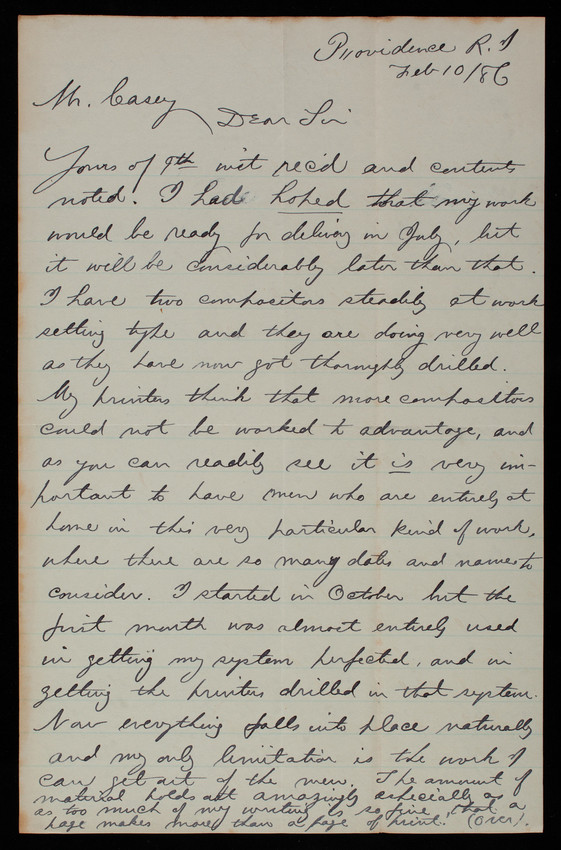 Providence R. I
Feb 10/86
Mr. Casey
Dear Sir
Yours of 9th inst rec'd and contents
noted. I had hoped that my work
would be ready for delivery in July, but
it will be considerably later than that.
I have two compositors steadily at work
setting type and they are doing very well
as they have now got thoroughly drilled.
My printers think that more compositors
could not be worked to advantage, and
as you can readily see it is very im-
portant to have men who are entirely at
home in this very particular kind of work,
where there are so many dates and names to
consider. I started in October but the
first month was almost entirely used
in getting my system perfected, and in
getting the printers drilled in that system.
Now everything falls into place naturally
and my only limitation is the work I
can get out of the men. The amount of
material holds out amazingly especially as
as too much of my writing is so fine, that a
page makes more than a page of print. (Over).